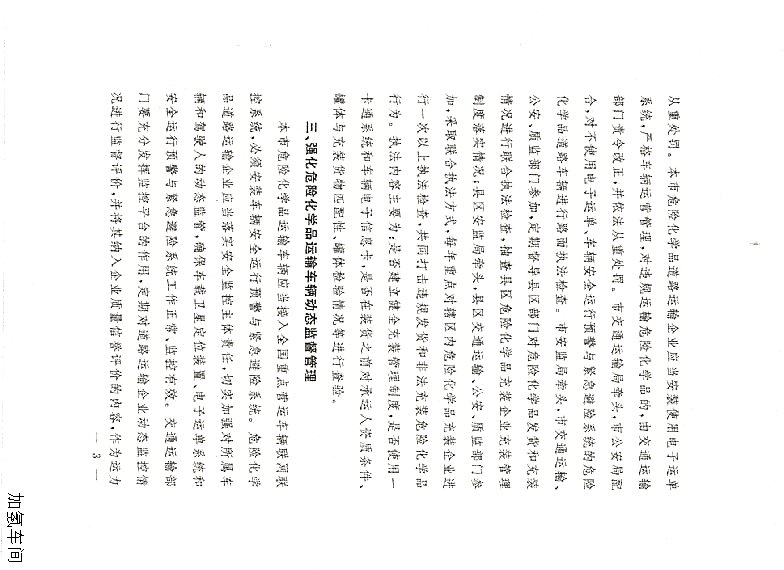 从重处理。本市危险化学品道路运输企业应当安装使用电子运单
系统，严格车辆运营管理，对违规运输危险化学品的，由交通运输
部门责令改正，并依法从重处罚。市交通运输局牵头，市公安局配
合，对不使用电子运单、车辆安全运行预警与紧急避险系统的危险
化学品道路车辆进行路面执法检查。市安监局牵头，市交通运输、
公安、质监部门参加，定期督导县区部门对危险化学品发货和充装
情况进行联合执法检查，抽查县区危险化学品充装企业充装管理
制度落实情况，县区安监局牵头，县区交通运输、公安、质监部门参
加，采取联合执法方式，每年重点对辖区内危险化学品充装企业进
行一次以上执法检查，共同打击违规发货和非法充装危险化学品
行为。执法内容主要为：是否建立健全充装管理制度，是否使用一
卡通系统和车辆电子信息卡，是否在装货之前对承运人资质条件、
罐体与充装货物匹配性、罐体检验情况等进行查验。
三、强化危险化学品运输车辆动态监督管理
本市危险化学品运输车辆应当接入全国重点营运车辆联网联
控系统，必须安装车辆安全运行预警与紧急避险系统。危险化学
品道路运输企业应当落实安全监控主体责任，切实加强对所属车
辆和驾驶人的动态监管，确保车载卫星定位装置、电子运单系统和
安全运行预警与紧急避险系统工作正常、监控有效。交通运输部
门要充分发挥监控平台的作用，定期对道路运输企业动态监控情
况进行监督评价，并将其纳入企业质量信誉评价的内容，作为运力
— 3 —
加氢车间